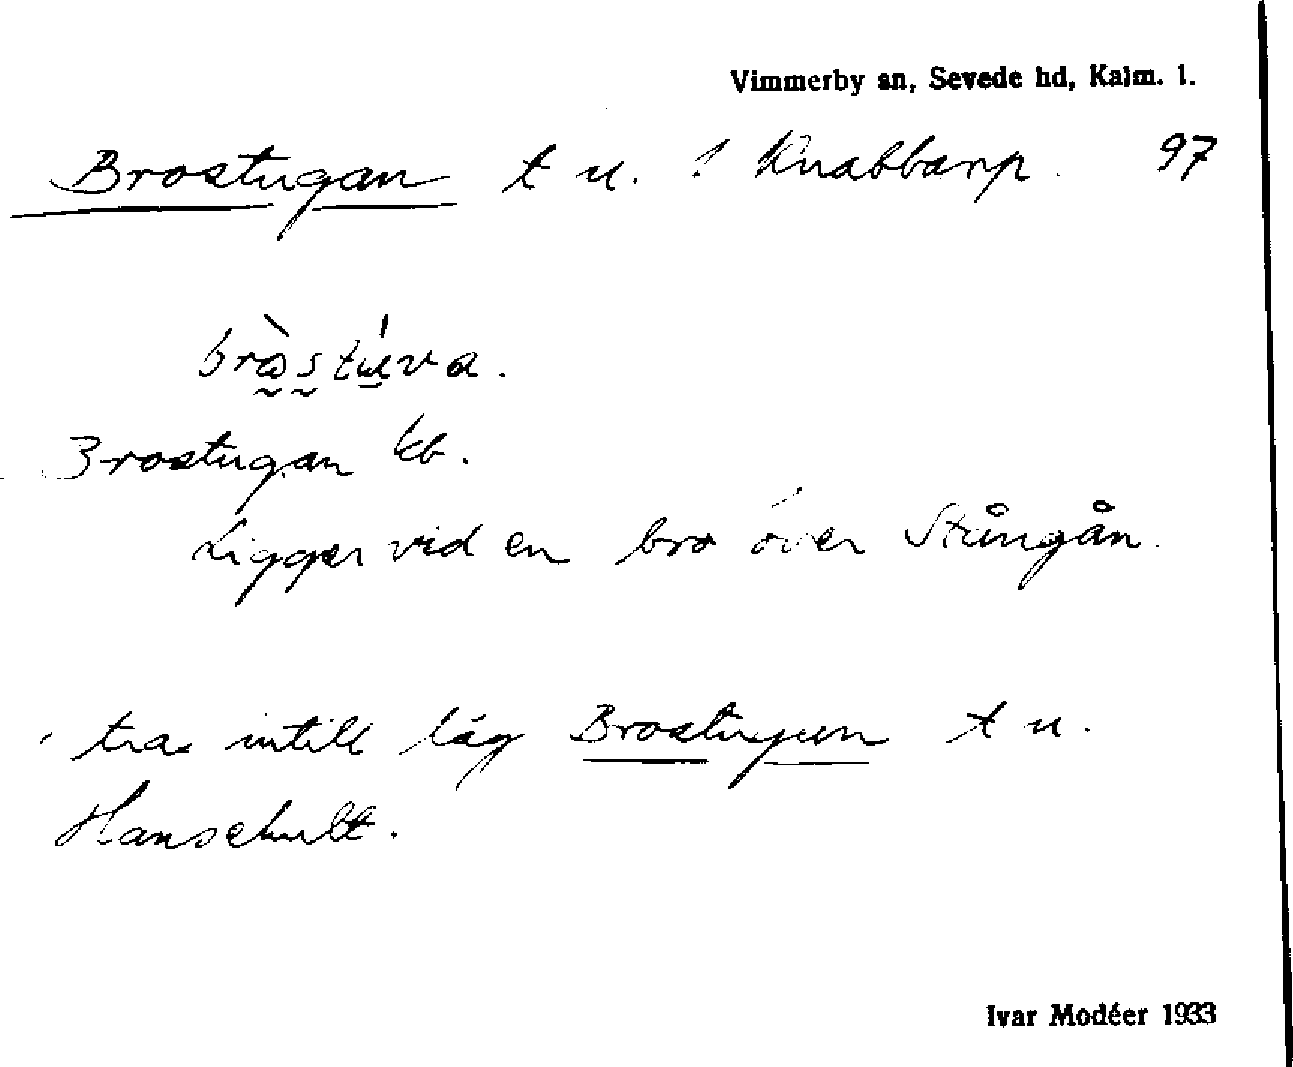 Vimmerby sn, Sevede hd, Kalm. l.
Brostugan t u. ! Knabbarp. 97
bròstúva.
Brostugan kb.
Ligger vid en bro över Stångån.
intill låg Brostugan t u.
Ivar Modéer 1933